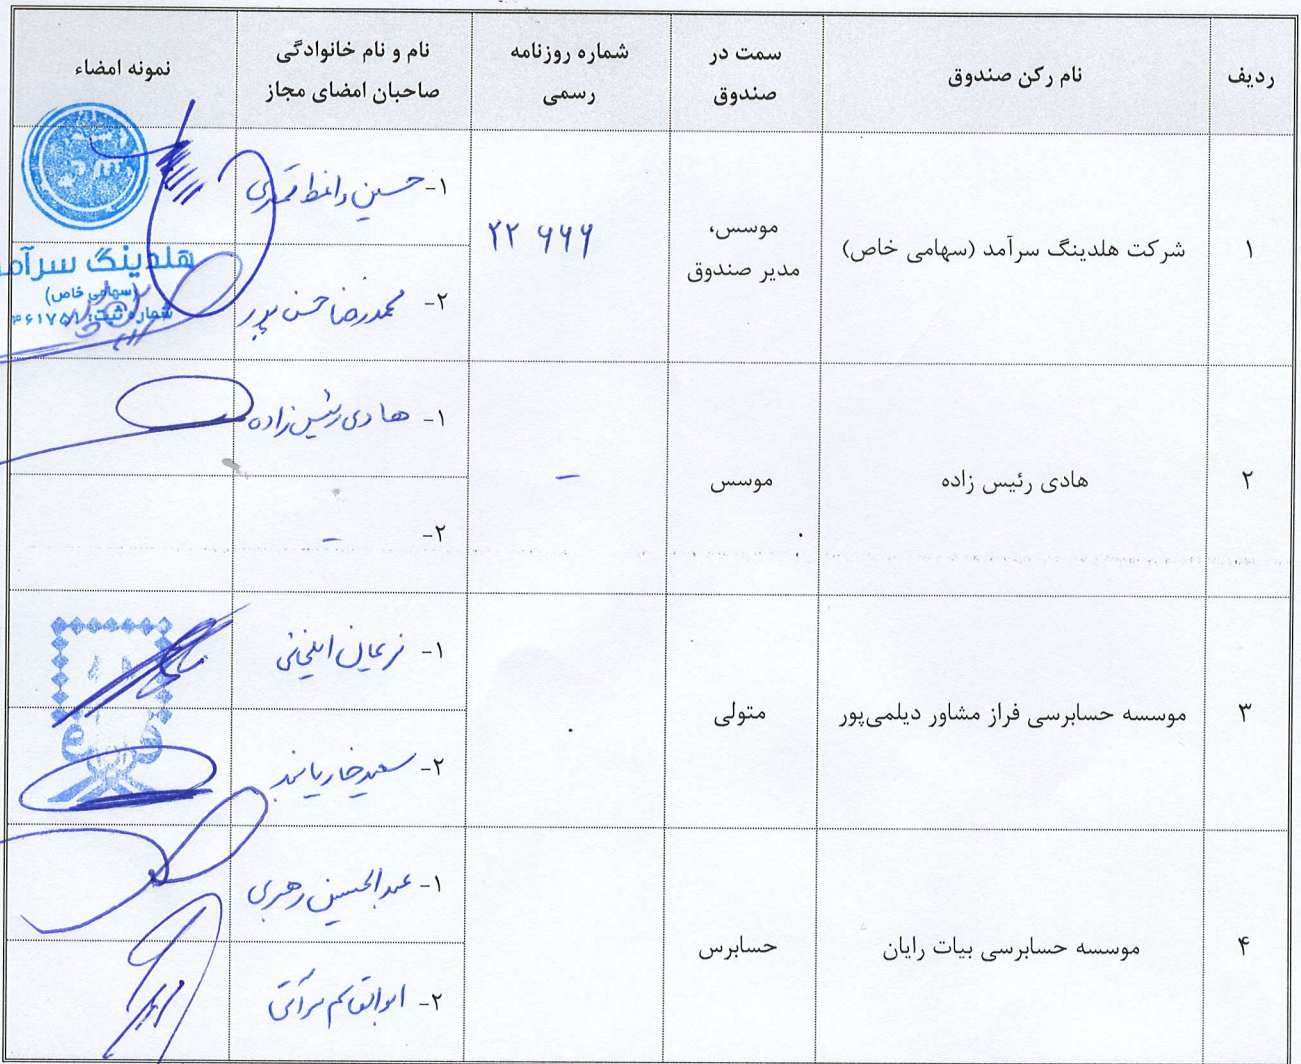 ردیف
نام رکن صندوق
سمت در
صندوق
شماره روزنامه
رسمی
نام و نام خانوادگی
صاحبان امضای مجاز
نمونه امضاء
۱
شرکت هلدینگ سرآمد (سهامی خاص)
موسس،
مدیر صندوق
۲۲ ۶۶۶
۱- حسین
۲- محمدرضا حسن پور
هلدینگ سرآمد
(سهامی خاص)
شماره ثبت: ۴۶۱۷۵۱
۲
هادی رئیس زاده
موسس
–
۱- هادی رئیس زاده
۲- –
۳
موسسه حسابرسی فراز مشاور دیلمی‌پور
متولی
۱- نریمان ایلخانی
۲- سعید
فراز
۴
موسسه حسابرسی بیات رایان
حسابرس
۱- عبدالحسین رهبری
۲- ابوالقاسم مرآتی